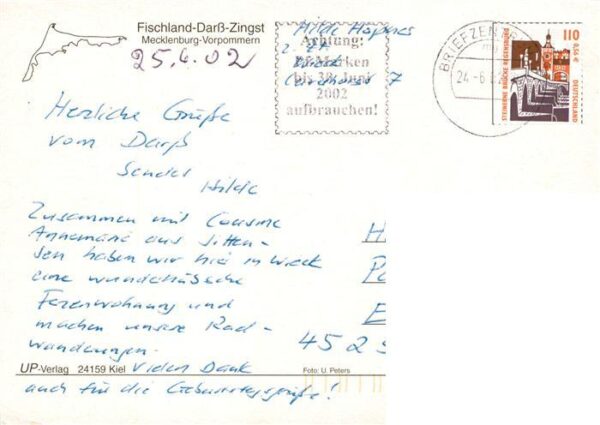 Fischland-Darß-Zingst
Mecklenburg-Vorpommern
25.6.02
Hilde
z. Zt.
7
Achtung:
bis 30. Juni
2002
aufbrauchen!
BRIEFZEN
24-6
110
0,56 €
DEUTSCHLAND
Herzliche Grüße
vom Darß
sendet
Hilde
Zusammen mit Cousine
Annemarie aus Sitten-
sen haben wir hier in Wieck
eine wunderhübsche
Ferienwohnung und
machen unsere Rad-
wanderungen.
H
P
E
452
UP-Verlag 24159 Kiel Vielen Dank
Foto: U. Peters
auch für die Geburtstagsgrüße!